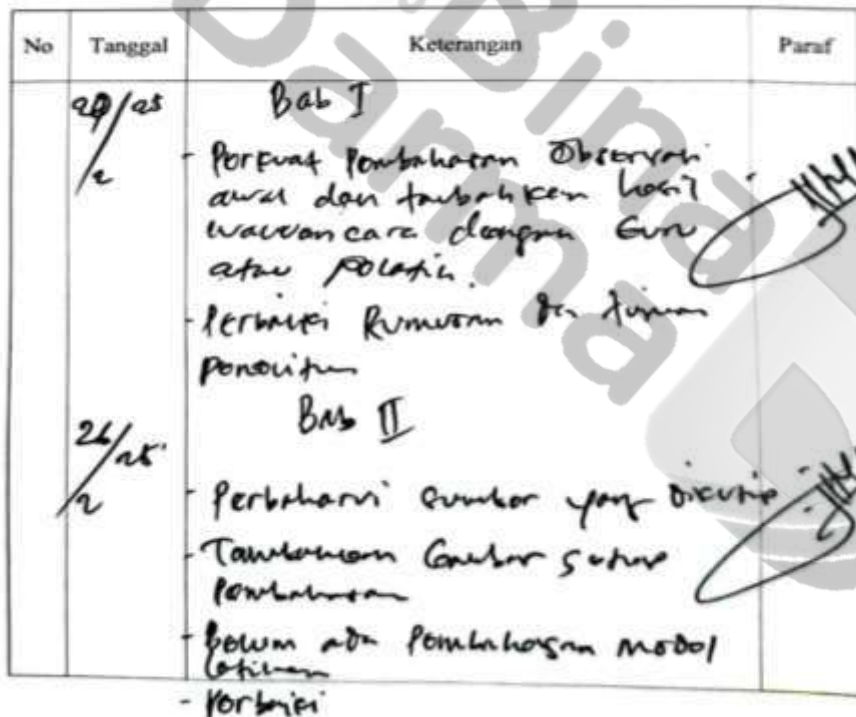 Bina
Darma
No Tanggal Keterangan Paraf
/25
/2
Bab I
- Perkuat Pembahasan Observasi
awal dan tambahkan hasil
wawancara dengan Guru
atau Pelatih.
- Perbaiki Rumusan dan tujuan
Penelitian
26/25
/2
Bab II
- Perbaharui sumber yang Dikutip
- Tambahkan Gambar setiap
Pembahasan
- Belum ada Pembahasan model
latihan
- Perbaiki